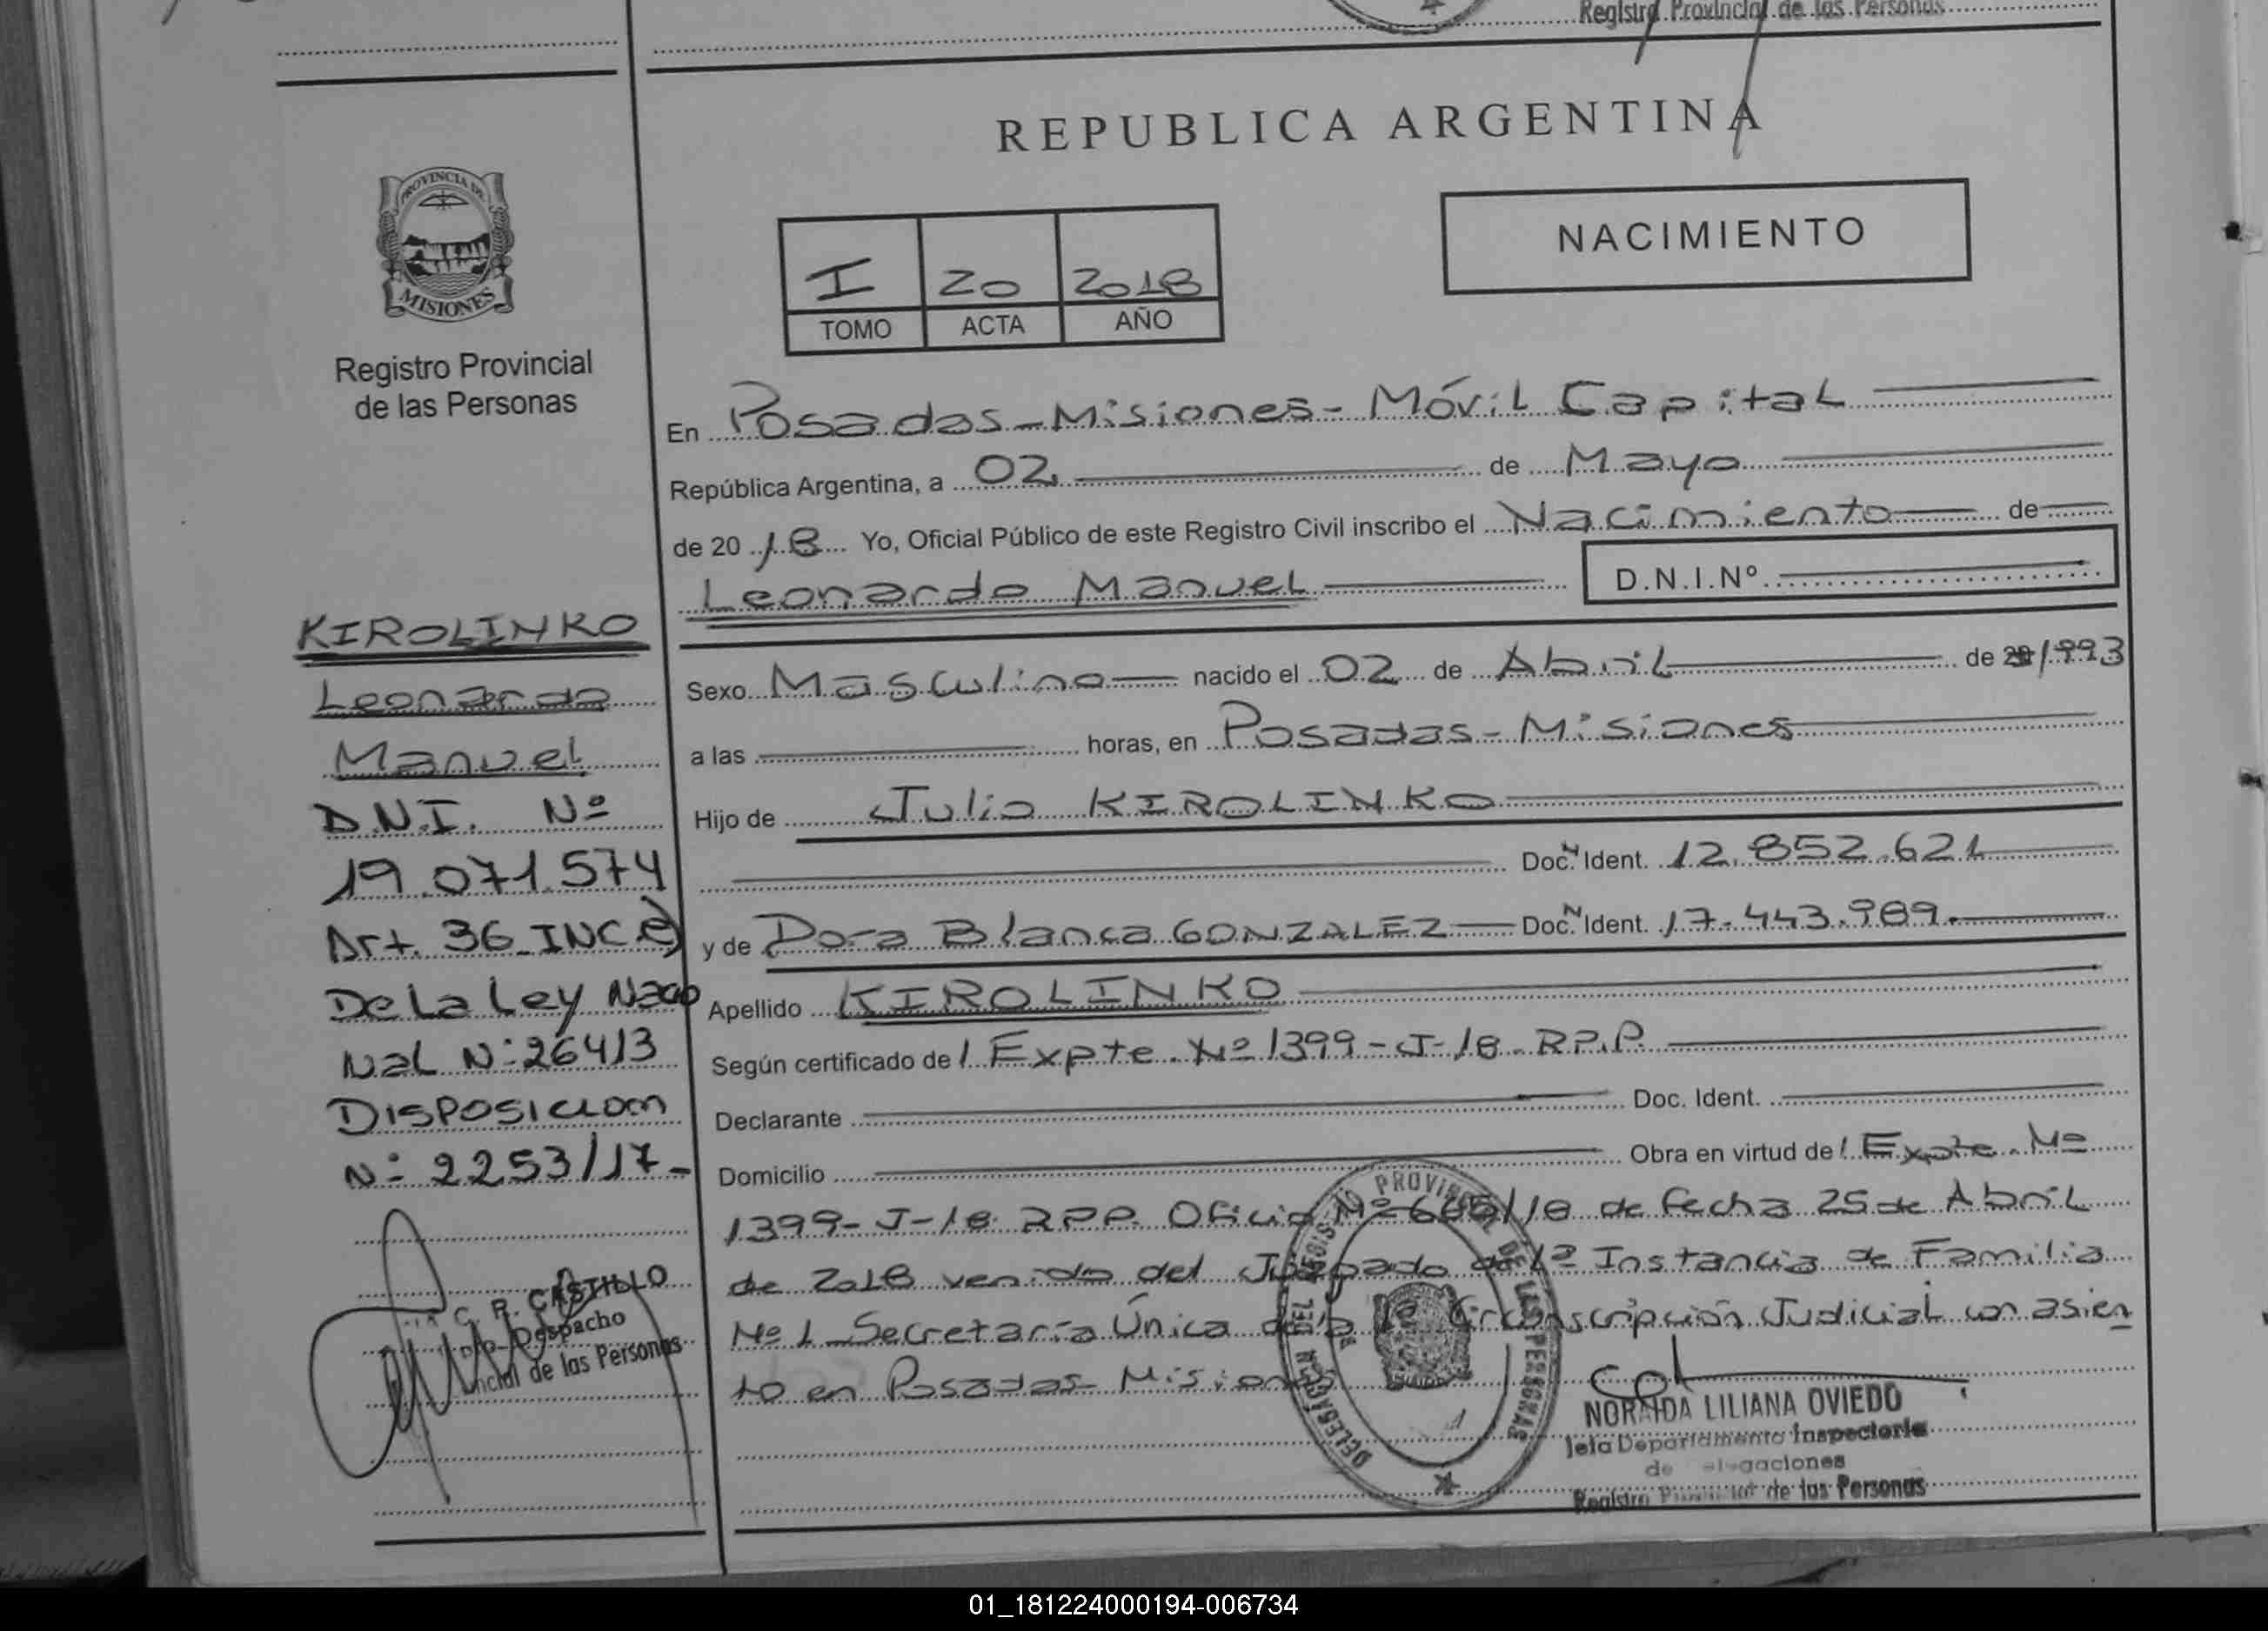 Registro Provincial de las Personas
REPUBLICA ARGENTINA
PROVINCIA DE
MISIONES
Registro Provincial
de las Personas
NACIMIENTO
I 20 2018
TOMO ACTA AÑO
En Posadas - Misiones - Móvil Capital
República Argentina, a 02 de Mayo
de 20 18 Yo, Oficial Público de este Registro Civil inscribo el Nacimiento de
Leonardo Manuel D.N.I.Nº
Sexo Masculino nacido el 02 de Abril de 1993
a las horas, en Posadas - Misiones
Hijo de Julio KIROLINKO
Doc. N Ident. 12.852.621
y de Dora Blanca GONZALEZ Doc. N Ident. 17.443.989.
Apellido KIROLINKO
Según certificado de / Expte. Nº 1399 - J - 18 - R.P.P.
Declarante Doc. Ident.
Domicilio Obra en virtud de / Expte. Nº
1399 - J - 18 RPP. Oficio Nº /18 de fecha 25 de Abril
de 2018 venido del Juzgado de 1ª Instancia de Familia
Nº 1 Secretaría Única de la Circunscripción Judicial con asien
to en Posadas - Misiones
KIROLINKO
Leonardo
Manuel
D.N.I. Nº
19.071.574
Art. 36 INC e)
De La Ley Nacio
Nal Nº 26413
DISPOSICION
Nº 2253/17 -
C. R. CASTILLO
Despacho
de las Personas
DELEGACIÓN DEL REGISTRO PROVINCIAL DE LAS PERSONAS
NORAIDA LILIANA OVIEDO
Jefa Departamento Inspectoría
de
Registro Provincial de las Personas
01_181224000194-006734